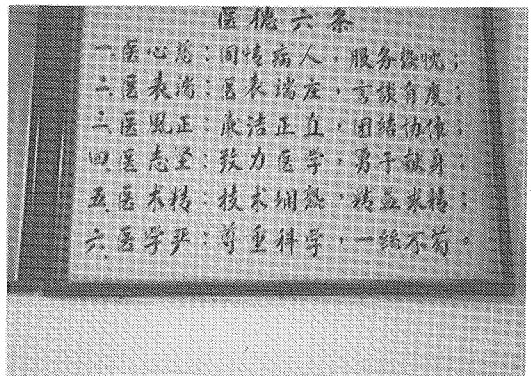 医德六条
一.医心慈:同情病人,服务热忱;
二.医表端:医表端庄,言谈有度;
三.医风正:廉洁正直,团结协作;
四.医志坚:致力医学,勇于献身;
五.医术精:技术娴熟,精益求精;
六.医学严:尊重科学,一丝不苟。